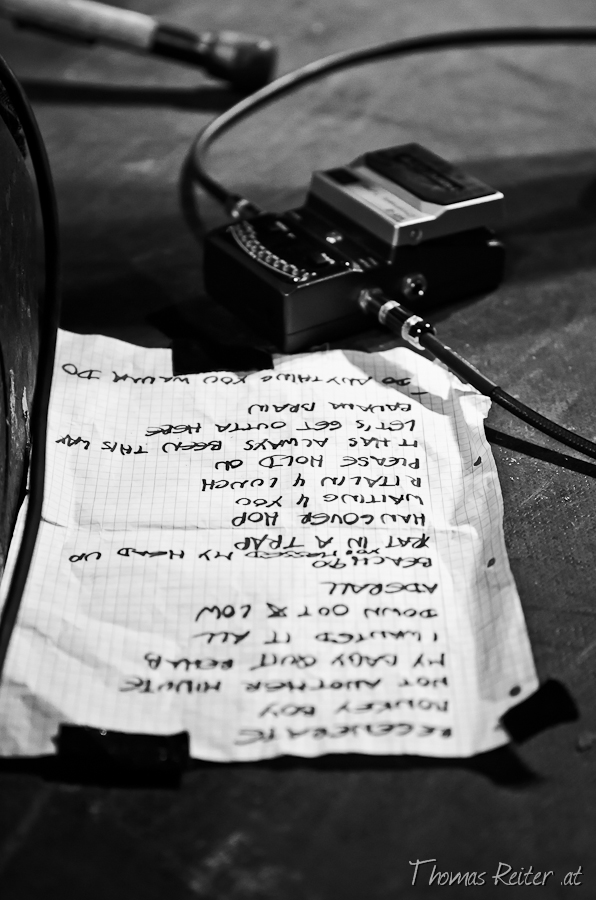 REGENERATE
MONKEY BOY
NOT ANOTHER MINUTE
MY BABY QUIT REHAB
I WANTED IT ALL
DOWN OUT & LOW
ADERALL
BEACH 90
YOU MESSED MY HEAD UP
RAT IN A TRAP
HANGOVER HOP
WAITING 4 YOU
RITALIN 4 LUNCH
PLEASE HOLD ON
IT HAS ALWAYS BEEN THIS WAY
LET'S GET OUTTA HERE
BANANA BRAIN
DO ANYTHING YOU WANNA DO
Thomas Reiter .at